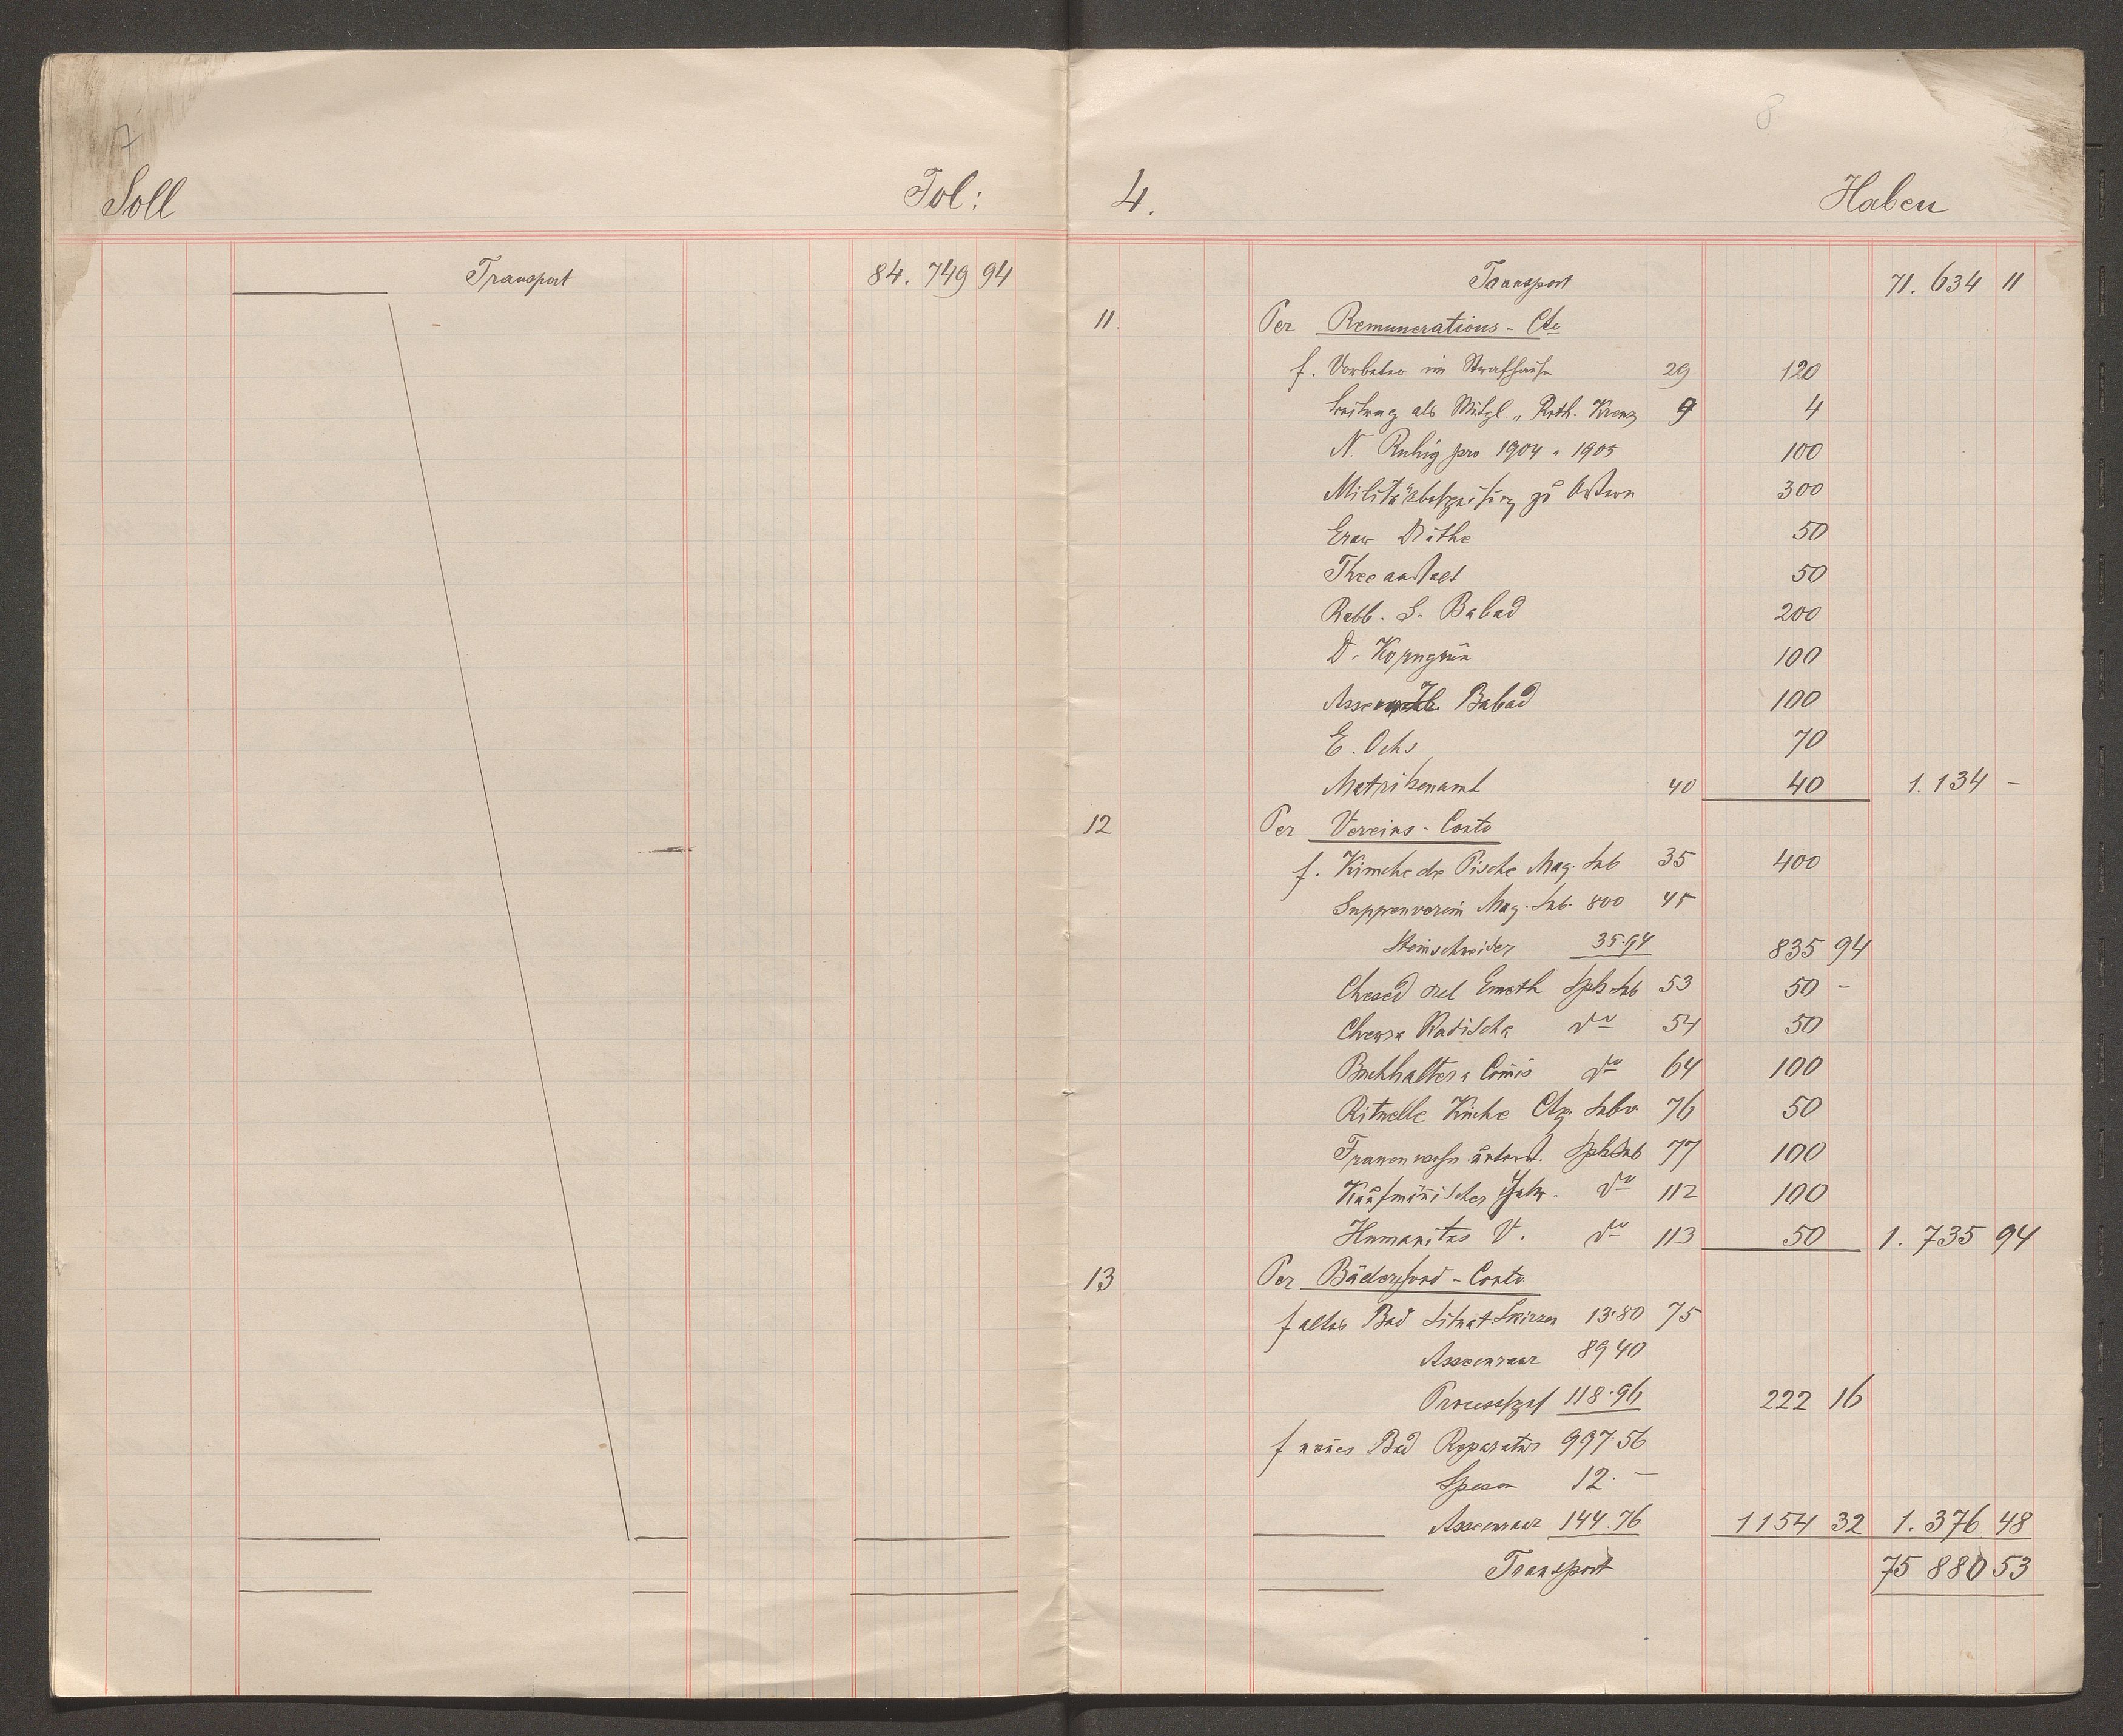 7
Soll Fol:
Transport 84.749 94
8
4. Haben
Transport 71.634 11
11. Per Remunerations - Cto
f. Vorbeter im Strafhause 29 120
Beitrag als Mitgl. „ Roth. Kreuz 9 4
N. Ruhig pro 1904 " 1905 100
Militärbespeisung zu Ostern 300
50
Theeanstalt 50
Rabb. S. Babad 200
D. Korngrün 100
Babad 100
E. Ochs 70
Matrikenamt 40 40 1.134 -
12 Per Vereins - Conto
f. Kimche de Pische Mag. Sub 35 400
Suppenverein Mag. Sub. 800 45
Steinschneider 35.94 835 94
Chesed Emeth Spk Sub 53 50 -
Chewra Kadischa do 54 50
Buchhalter & Comis do 64 100
Rituelle Küche Sub 76 50
Spk Sub 77 100
Kaufmänischer do 112 100
Humanitas V. do 113 50 1.735 94
13 Per Bäderfond - Conto
f altes Bad Situat Skizzen 13.80 75
Assecuranz 89 40
118.96 222 16
f neues Bad Reparatur 997.56
Spesen 12. -
Assecuranz 144.76 1154 32 1.376 48
Transport 75 880 53